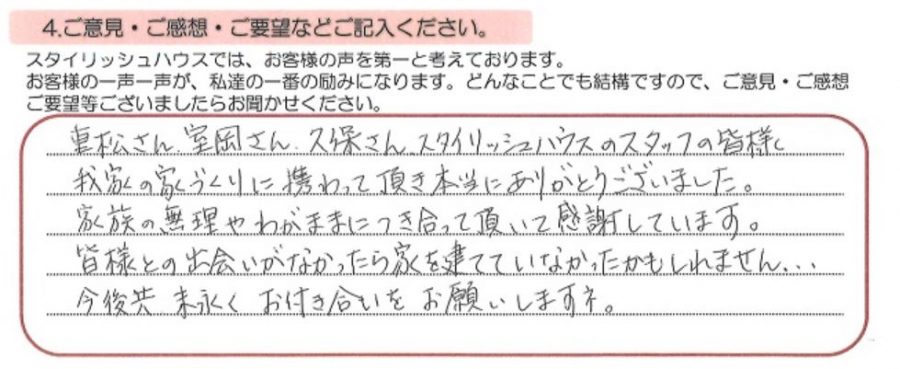 4.ご意見・ご感想・ご要望などご記入ください。
スタイリッシュハウスでは、お客様の声を第一と考えております。
お客様の一声一声が、私達の一番の励みになります。どんなことでも結構ですので、ご意見・ご感想
ご要望等ございましたらお聞かせください。
重松さん、室岡さん、久保さん、スタイリッシュハウスのスタッフの皆様
我家の家づくりに携わって頂き本当にありがとうございました。
家族の無理やわがままにつき合って頂いて感謝しています。
皆様との出会いがなかったら家を建てていなかったかもしれません...
今後共、末永くお付き合いをお願いしますネ。